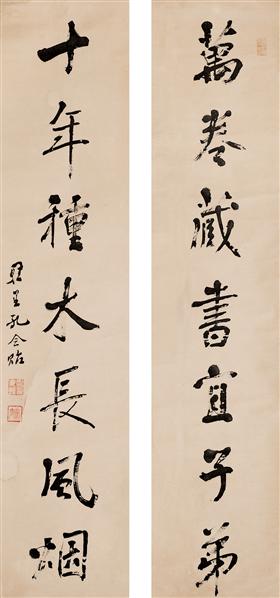 萬卷藏書宜子弟
十年種木長風烟
孔令貽